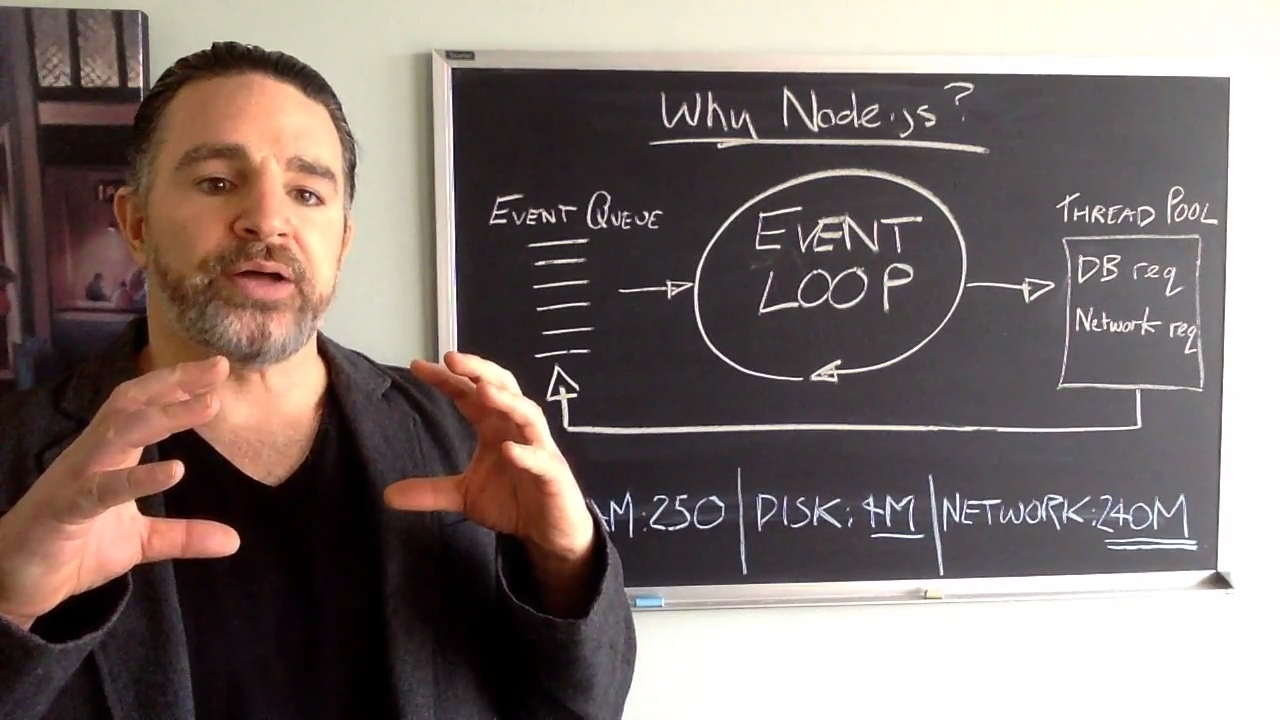 Why Node.js?
EVENT QUEUE
EVENT
LOOP
THREAD POOL
DB req
Network req
AM:250 | DISK: 4M | NETWORK:240M